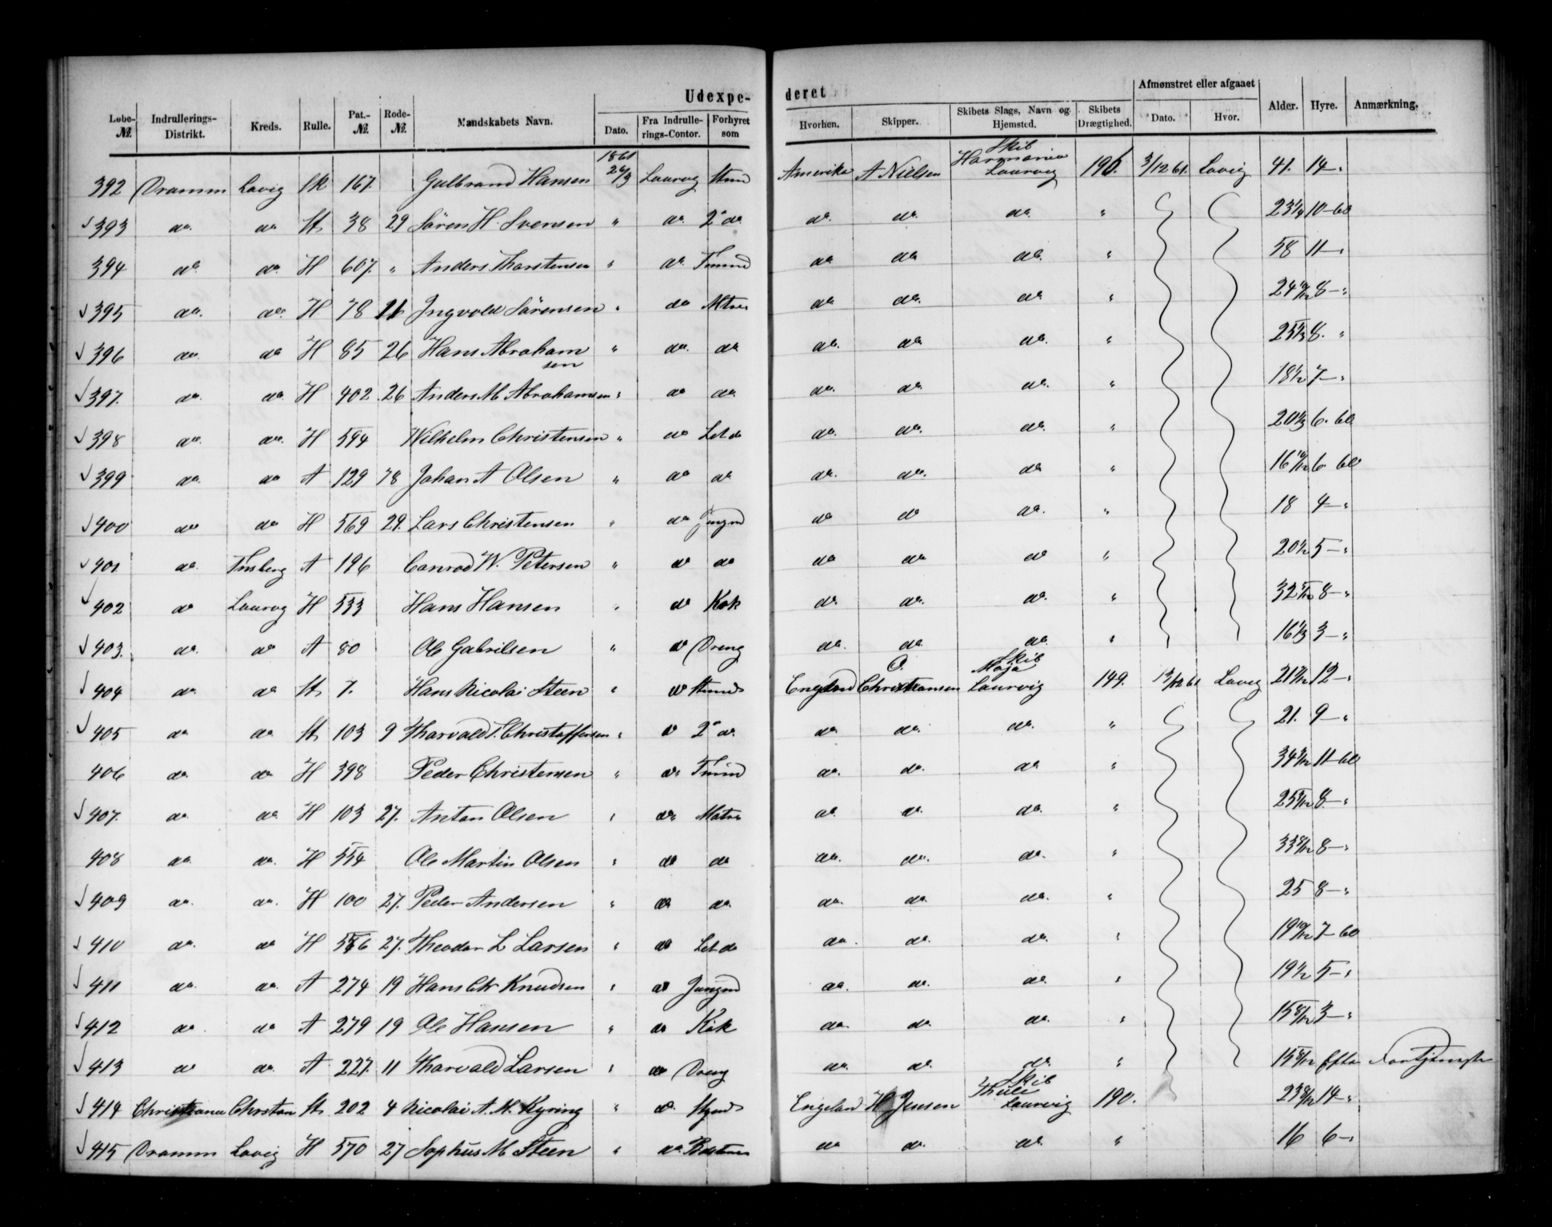 Udexpe- deret
Løbe- № | Indrullerings- Distrikt. | Kreds. | Rulle. | Pat.- № | Rode- № | Mandskabets Navn. | Dato. | Fra Indrulle- rings-Contor. | Forhyret som | Hvorhen. | Skipper. | Skibets Slags, Navn og Hjemsted. | Skibets Drægtighed. | Afmønstret eller afgaaet Dato. | Hvor. | Alder. | Hyre. | Anmærkning.
392 Dramm Lavig 167. Gulbrand Hansen 1861 24/3 Laurvig Stmd Amerika A Nielsen Skib Harmonia Laurvig 196 3/12 61. Lavig 41. 14 -
393 do do St 38 29 Søren H. Svensen " do 2d do do do do " 23 10-60
394 do do H 607. " Anders Thorstensen " do Tmmd do do do " 58 11 -
395 do do H 78 26 Ingvold Sørensen " do Mtrs do do do " 24 8 -
396 do do H 85 26 Hans Abraham sen " do do do do do " 25 8. "
397. do do H 402 26 Anders M Abrahamsen " do do do do do " 18½ 7 -
398 do do H 594 Wilhelm Christensen " do Let do do do do " 20 6. 60
399 do do A 129 78 Johan A Olsen " do do do do do 16 6 60
400 do do H 569 29. Lars Christensen " do Jungmd do do do " 18 4 -
401 do Tmsberg A 196 Conrad W. Petersen " do do do do do " 20½ 5 -
402 do Laurvg H 533 Hans Hansen " do Kok do do do " 32 8 -
403. do do A 80 Ole Gabrilsen " do Dreng do do do " 16 3 -
404 do do St 7. Hans Nicolai Steen " do Stmd England O. Christiansen Skib Maja Laurvig 149. 13/12 61 Lavig 21 12 -
405 do do St 103 9 Tharvald T. Christoffersen " do 2d do do do do " 21. 9 -
406 do do H 398 Peder Christensen " do Tmmd do do do " 34 11-60
407. do do H 103 27. Anton Olsen " do Matrs do do do " 25 8 -
408 do do H 554 Ole Martin Olsen " do do do do do " 33 8 -
409 do do H 100 27. Peder Andersen " do do do do do " 25 8 -
410 do do H 556 27. Theodor L Larsen " do Let do do do do " 19 7-60
411 do do A 274 19 Hans Chr Knudsen " do Jungmd do do do " 19½ 5 -
412 do do A 279 19 Ole Hansen " do Kok do do do " 15 3 -
413 do do A 227. 11 Tharvald Larsen " do Dreng do do do " 15 Efter Fortjeneste
414 Christiania Christan St 202 4 Nicolai A. N. Kyring " do Stymd England H Jensen Skib Laurvig 190. 23 14 -
415 Dramm Lavig H 570 27 Sophus M Steen " do do do do " 16 6 -